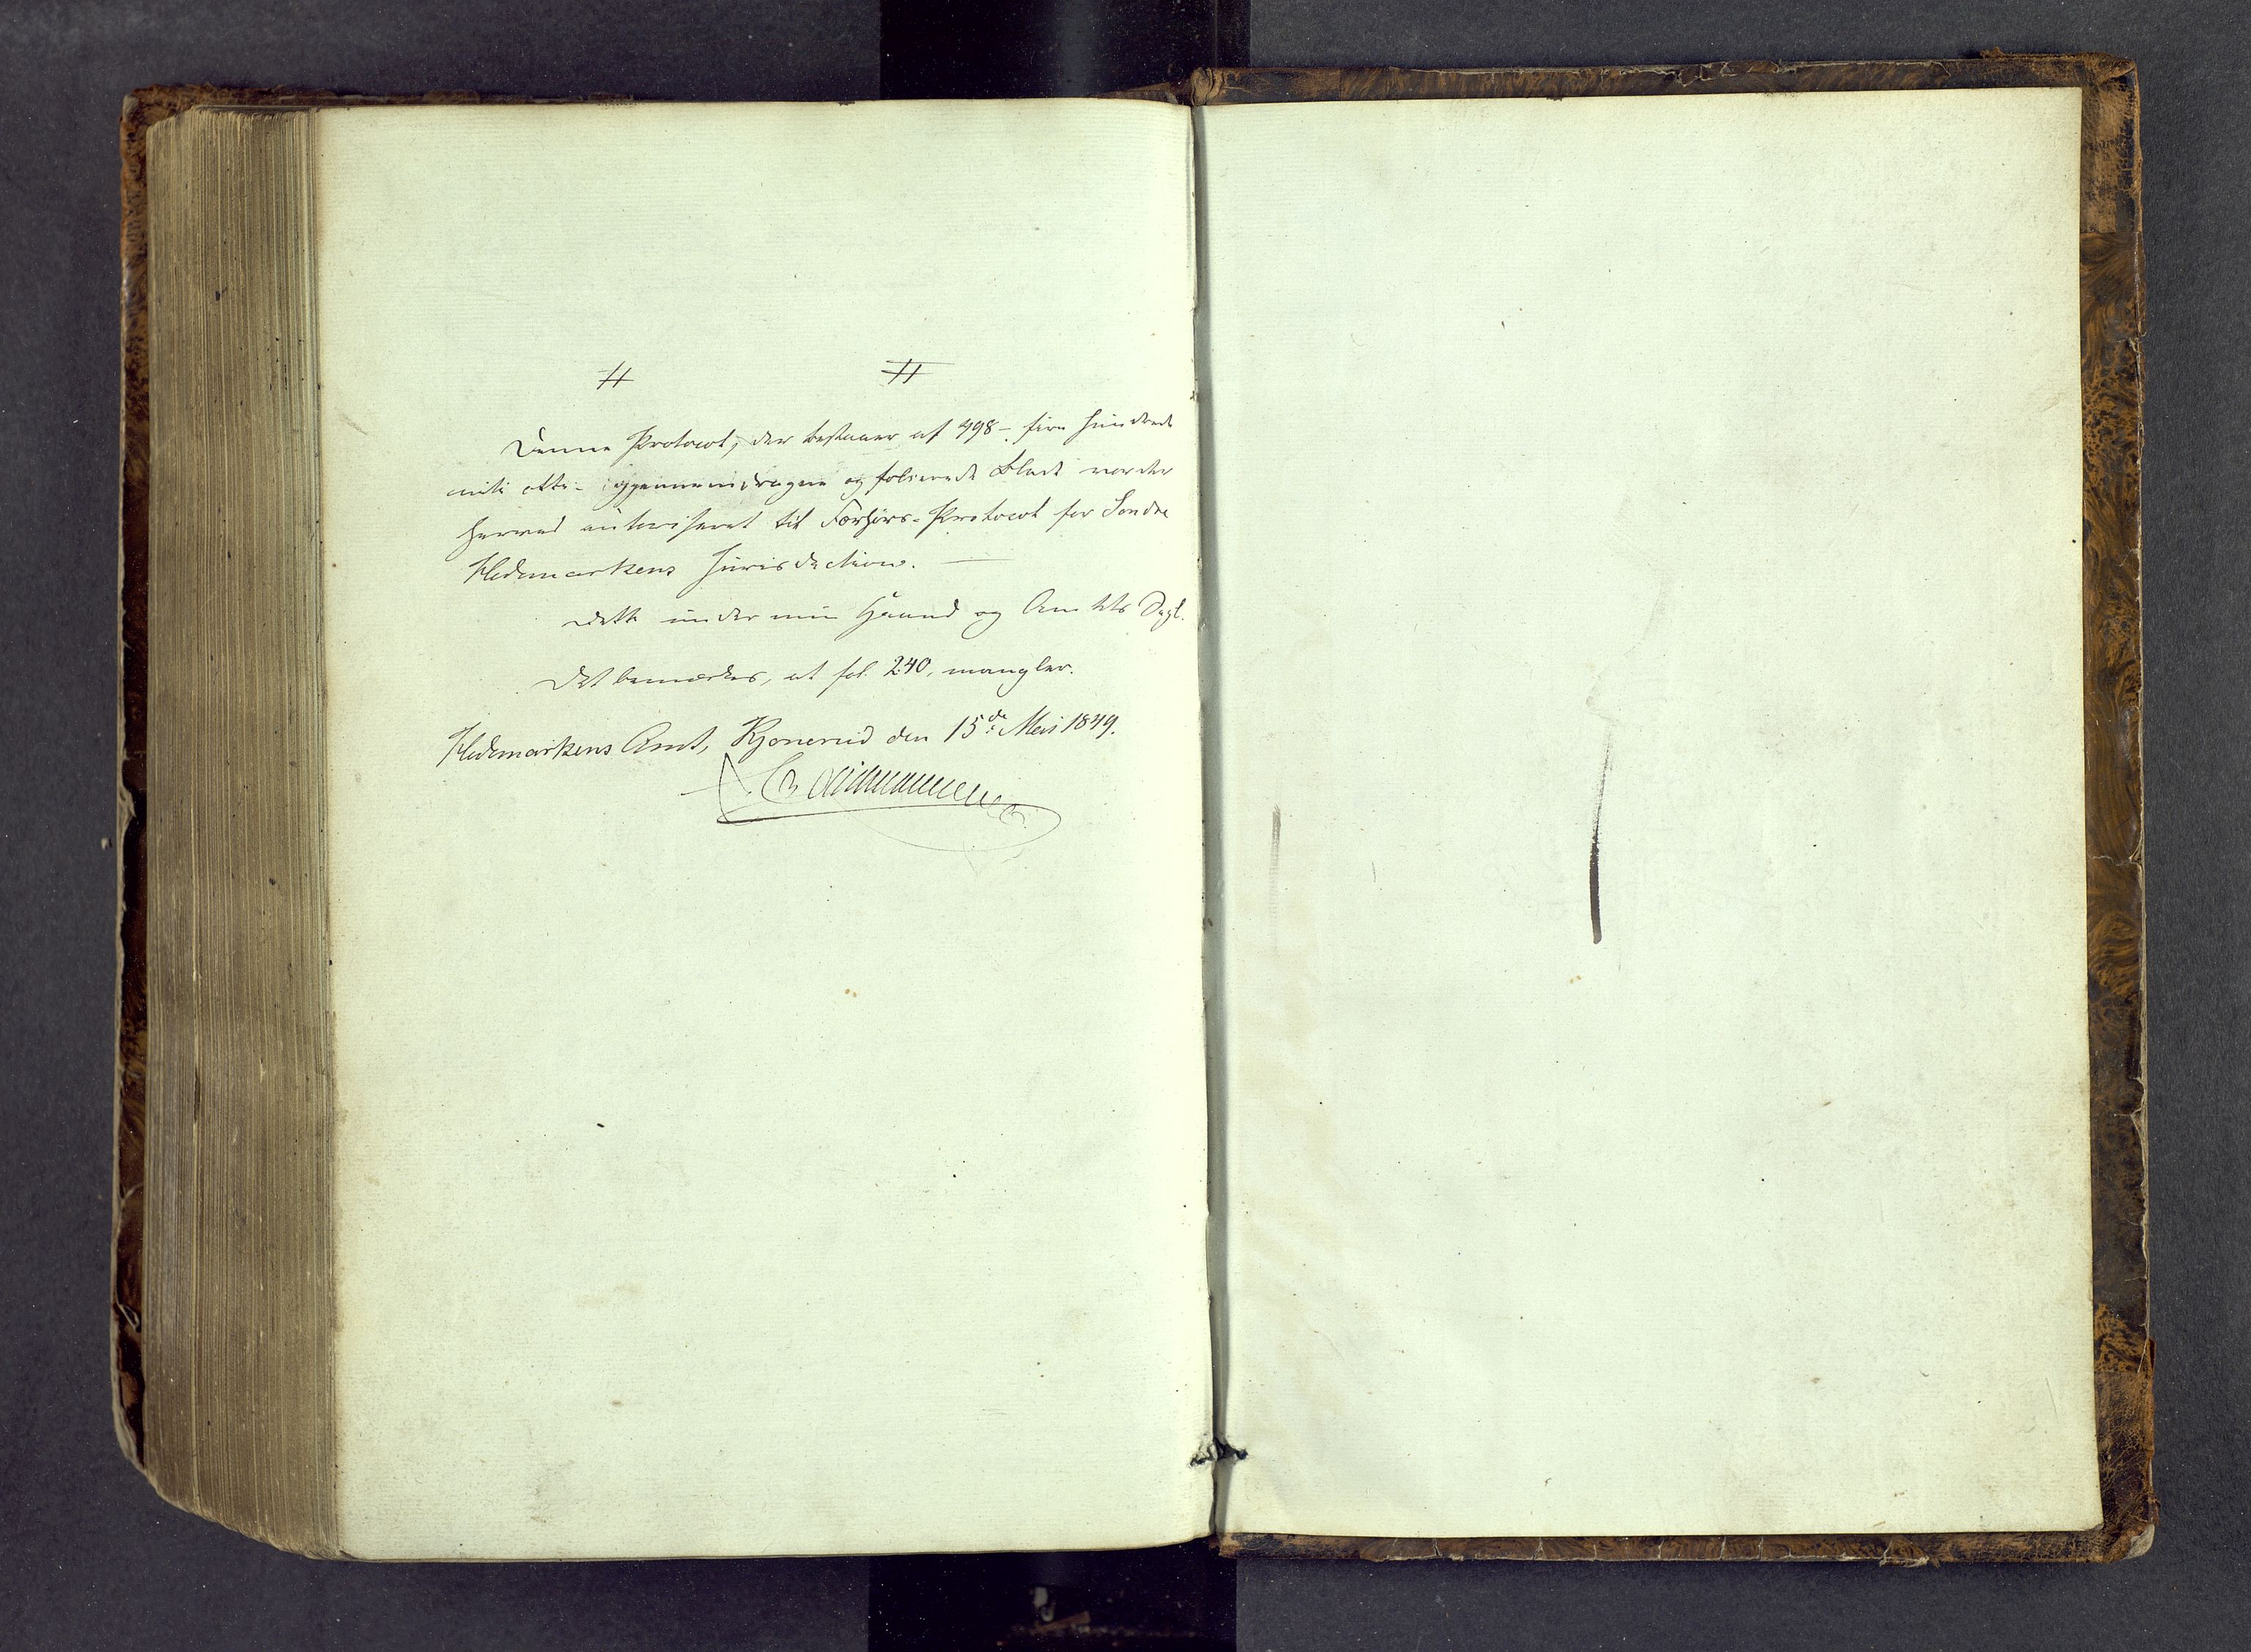 Denne Protocol, der bestaaer af 498 - fire hundrede
niti otte - igjennemdragne og folierede Blade vorder
herved authoriseret til Forhørs-Protocol for Søndre
Hedemarkens Jurisdiction. —
Dette under min Haand og Amtets Segl.
Det bemærkes, at fol. 240, mangler.
Hedemarkens Amt, den 15de Mai 1849.